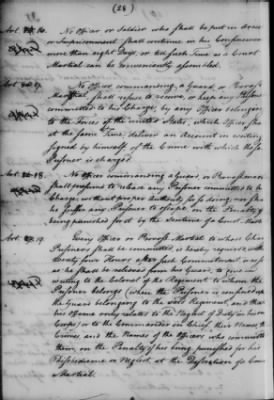 (28)
Art. 16. No Officer or Soldier who shall be put in Arrest
or Imprisonment, shall continue in his Confinement
more than eight Days, or till such Time as a Court
Martial can be conveniently assembled.
Art. 17. No Officer commanding a Guard, or Provost
Martial, shall refuse to receive, or keep any Prisoner
committed to his Charge, by any Officer belonging
to the Forces of the United States, which Officer shall
at the same Time, deliver an Account in writing,
signed by himself of the Crime with which the
Prisoner is charged.
Art. 18. No Officer commanding a Guard, or Provost Marshal
shall presume to release any Prisoner committed to his
Charge without proper Authority for so doing, nor shall
he suffer any Prisoner to escape, on the Penalty of
being punished for it by the Sentence of a Court Martial.
Art. 19. Every Officer or Provost Martial to whose Charge
Prisoners shall be committed, is hereby required, with
twenty four Hours after such Commitment, or as
as he shall be released from his Guard, to give in
writing to the Colonel of the Regiment to whom the
Prisoner belongs (where the Prisoner is confined upon
the Guard belonging to the said Regiment, and that
his offence only relates to the Neglect of Duty in his own
Corps) or to the Commander in Chief, their Names, their
Crimes, and the Names of the Officers who committed
them, on the Penalty of his being punished for his
Disobedience or Neglect at the Discretion of a Court
Martial.